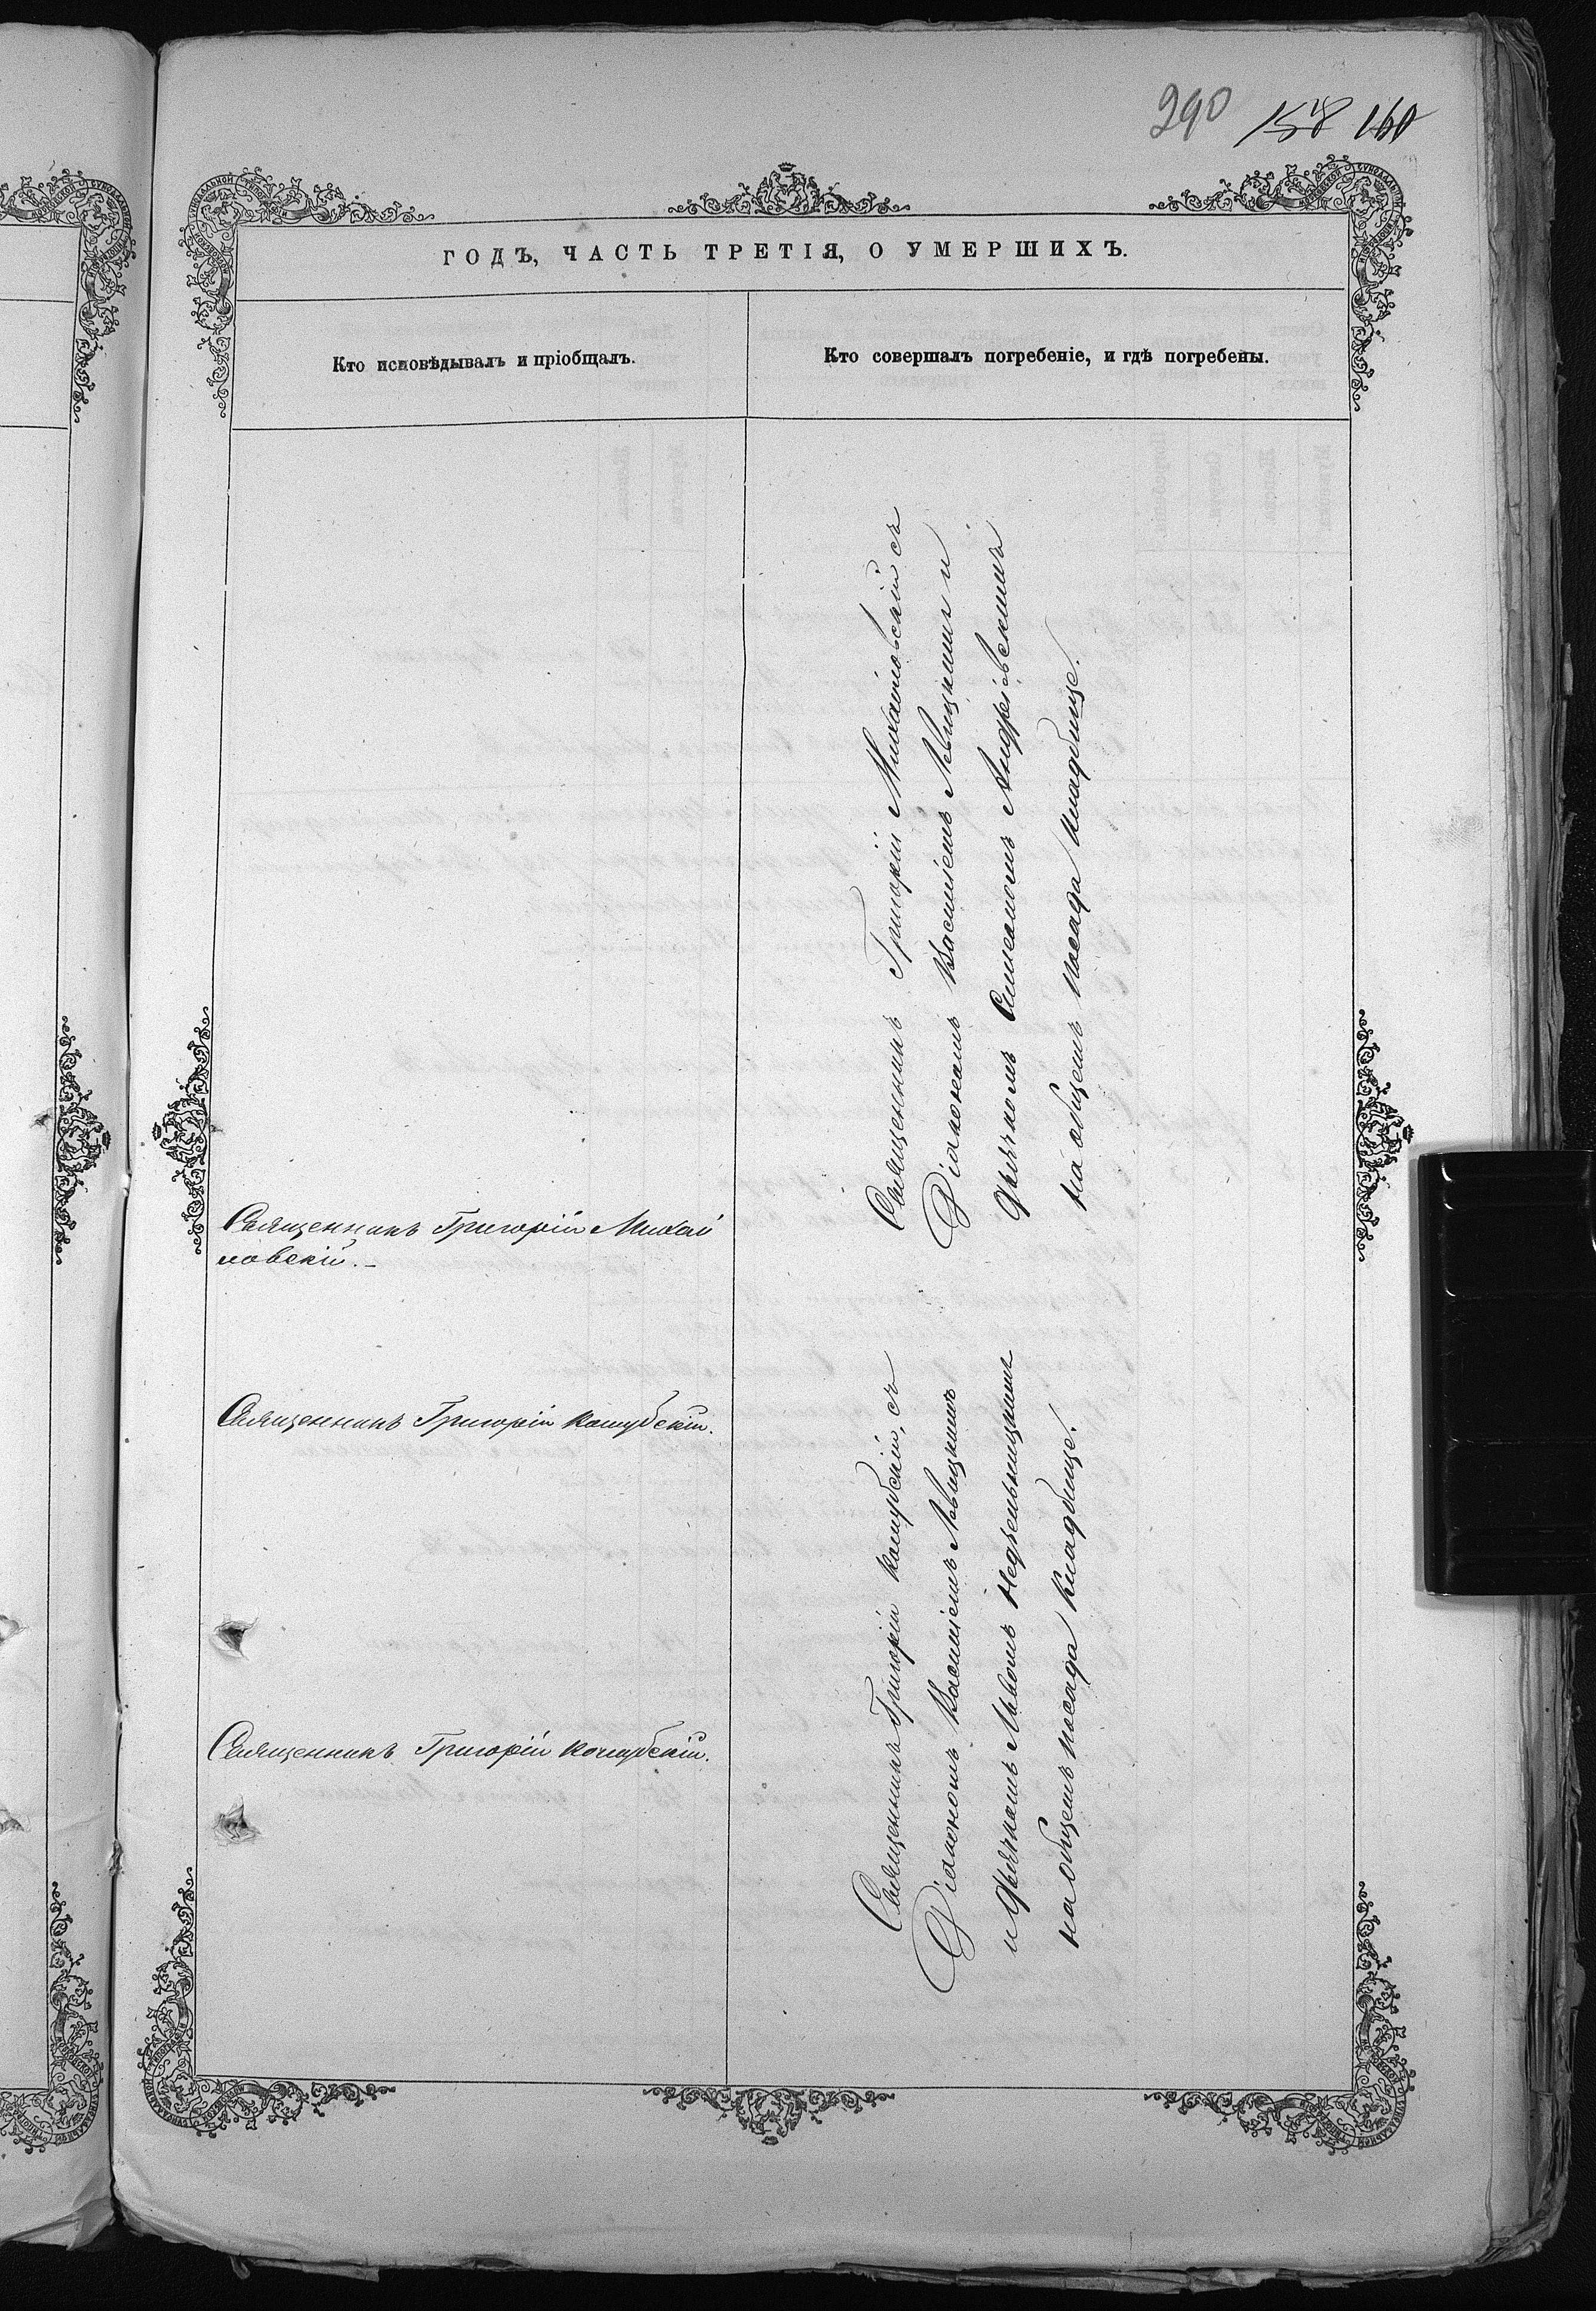 290 158 160
ГОДЪ, ЧАСТЬ ТРЕТІЯ, О УМЕРШИХЪ.
Кто исповѣдывалъ и пріобщалъ.
Кто совершалъ погребеніе, и гдѣ погребены.
Священникъ Григорій Михай
ловскій.
Священникъ Григорій Кошубскій.
Священникъ Григорій Кошубскій.
Священникъ Григорій Михайловскій съ
Діакономъ Василіемъ Левицкимъ и
Дьячкомъ Симеономъ Андріевскимъ
на общемъ посада кладбище.
Священникъ Григорій Кошубскій, съ
Діакономъ Василіемъ Левицкимъ
и Дьячкомъ Львомъ Недзельницкимъ
на общемъ посада кладбище.